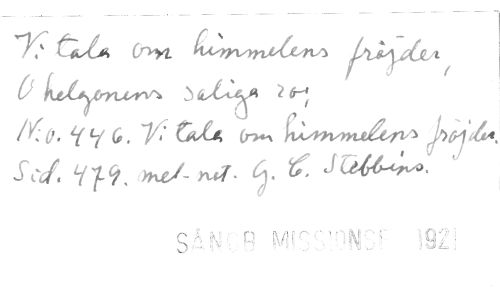 Vi tala om himmelens fröjder,
O helgonens saliga ro;
N:o. 446. Vi tala om himmelens fröjder.
Sid. 479. mel-not. G. C. Stebbins.
SÅNGB MISSIONSF 1921